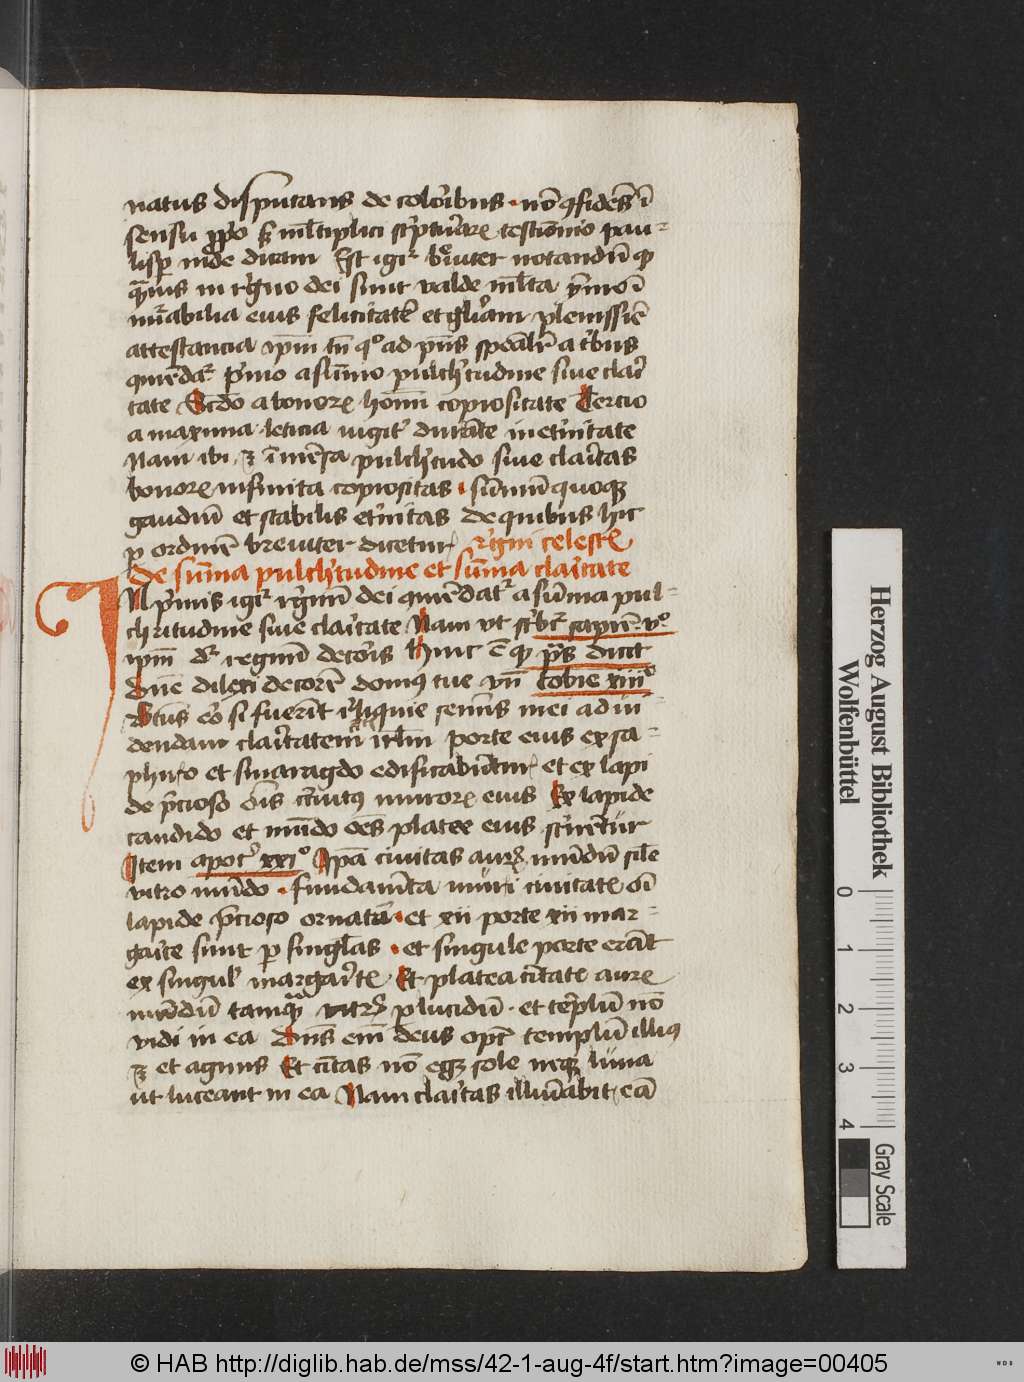 natus disputans de colo'ibus · nō ɋfidēs ī
sensu ꝓp'o sꝫ ml'tiplici sc'ptur'aꝝ testīonio pau-
lisꝑ īnde dicam Est igr̄ b'uiter notandū ꝙ
qͣmuis in r'gno dei sunt valde ml'ta ymo ī
mirabilia eius felicitatē et gl'iam plenissīe
attestancia ip̄m tn̄ qͦ ad pn̄s sp̄cial'r a t'bus
mēdat' p'mo a sum̄o pulch'tudine siue clai'
tate Scdo a bonoꝝ hom̄ copiositate Tercio
a maxima leticia iugit' durāte in et'nitate
Nam ibi ꝫ īmēsa pulch'tudo siue clai'tas
bonoꝝ infinita copiositas · sum̄ū quoqꝫ
gaudiū et stabilis et'nitas de quibus hic
ꝑ ordinē breuiter dicetur r'gni celestꝭ
De sum̄a pulch'tudine et sum̄a clai'tate
IN p'mis igr̄ r'gnū dei mēdat' a sum̄a pul-
chritudine siue clai'tate Nam vt sc'bit' sapiē vͦ
ip̄m dr̄ regnū deco'is Hinc ē ꝙ pͣs dicit
Dn̄e dilexi decorē domꝰ tue vn̄ tobie xiiiͦ
Btūs eo si fuerīt r'liquie semīs mei ad ui-
dendam clai'tatem irl̄m porte eius ex sa-
phiro et smaragdo edificabūtur et ex lapi
de p'cioso om̄is c'cuitꝰ muroꝝ eius Ex lapide
candido et mūdo oēs platee eius st'nentur
Item apoc' xxiͦ Ip̄a ciuitas aurꝫ mūdū sil'e
vitro mūdo · fundamēta muri ciuitatꝭ oī
lapide p'cioso ornata · et xii porte xii mar-
gai'te sunt ꝑ singl'as · et singule porte erāt
ex singul' margai'tꝭ Et platea cītatꝭ aurꝫ
mūdū tamqͣ vitrꝫ plucidū · et tēplū nō
vidi in ea Dn̄s em̄ deus op̄s templū illiꝰ
ꝫ et agnus Et cītas nō egꝫ sole neqꝫ luna
ut luceant in ea Nam clai'tas illuīabit eā
Herzog August Bibliothek
Wolfenbüttel
0 1 2 3 4
Gray Scale
© HAB http://diglib.hab.de/mss/42-1-aug-4f/start.htm?image=00405